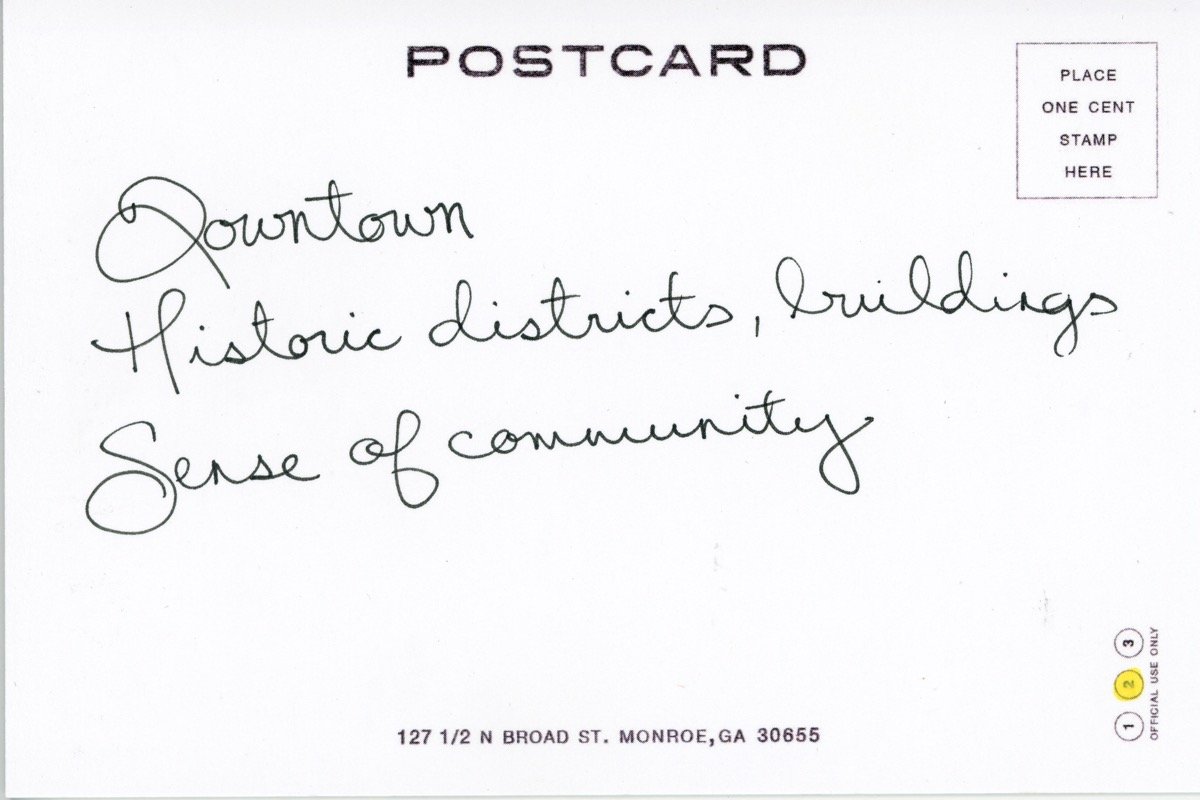 POSTCARD
PLACE
ONE CENT
STAMP
HERE
Downtown
Historic districts, buildings
Sense of community
1 2 3
OFFICIAL USE ONLY
127 1/2 N BROAD ST. MONROE,GA 30655